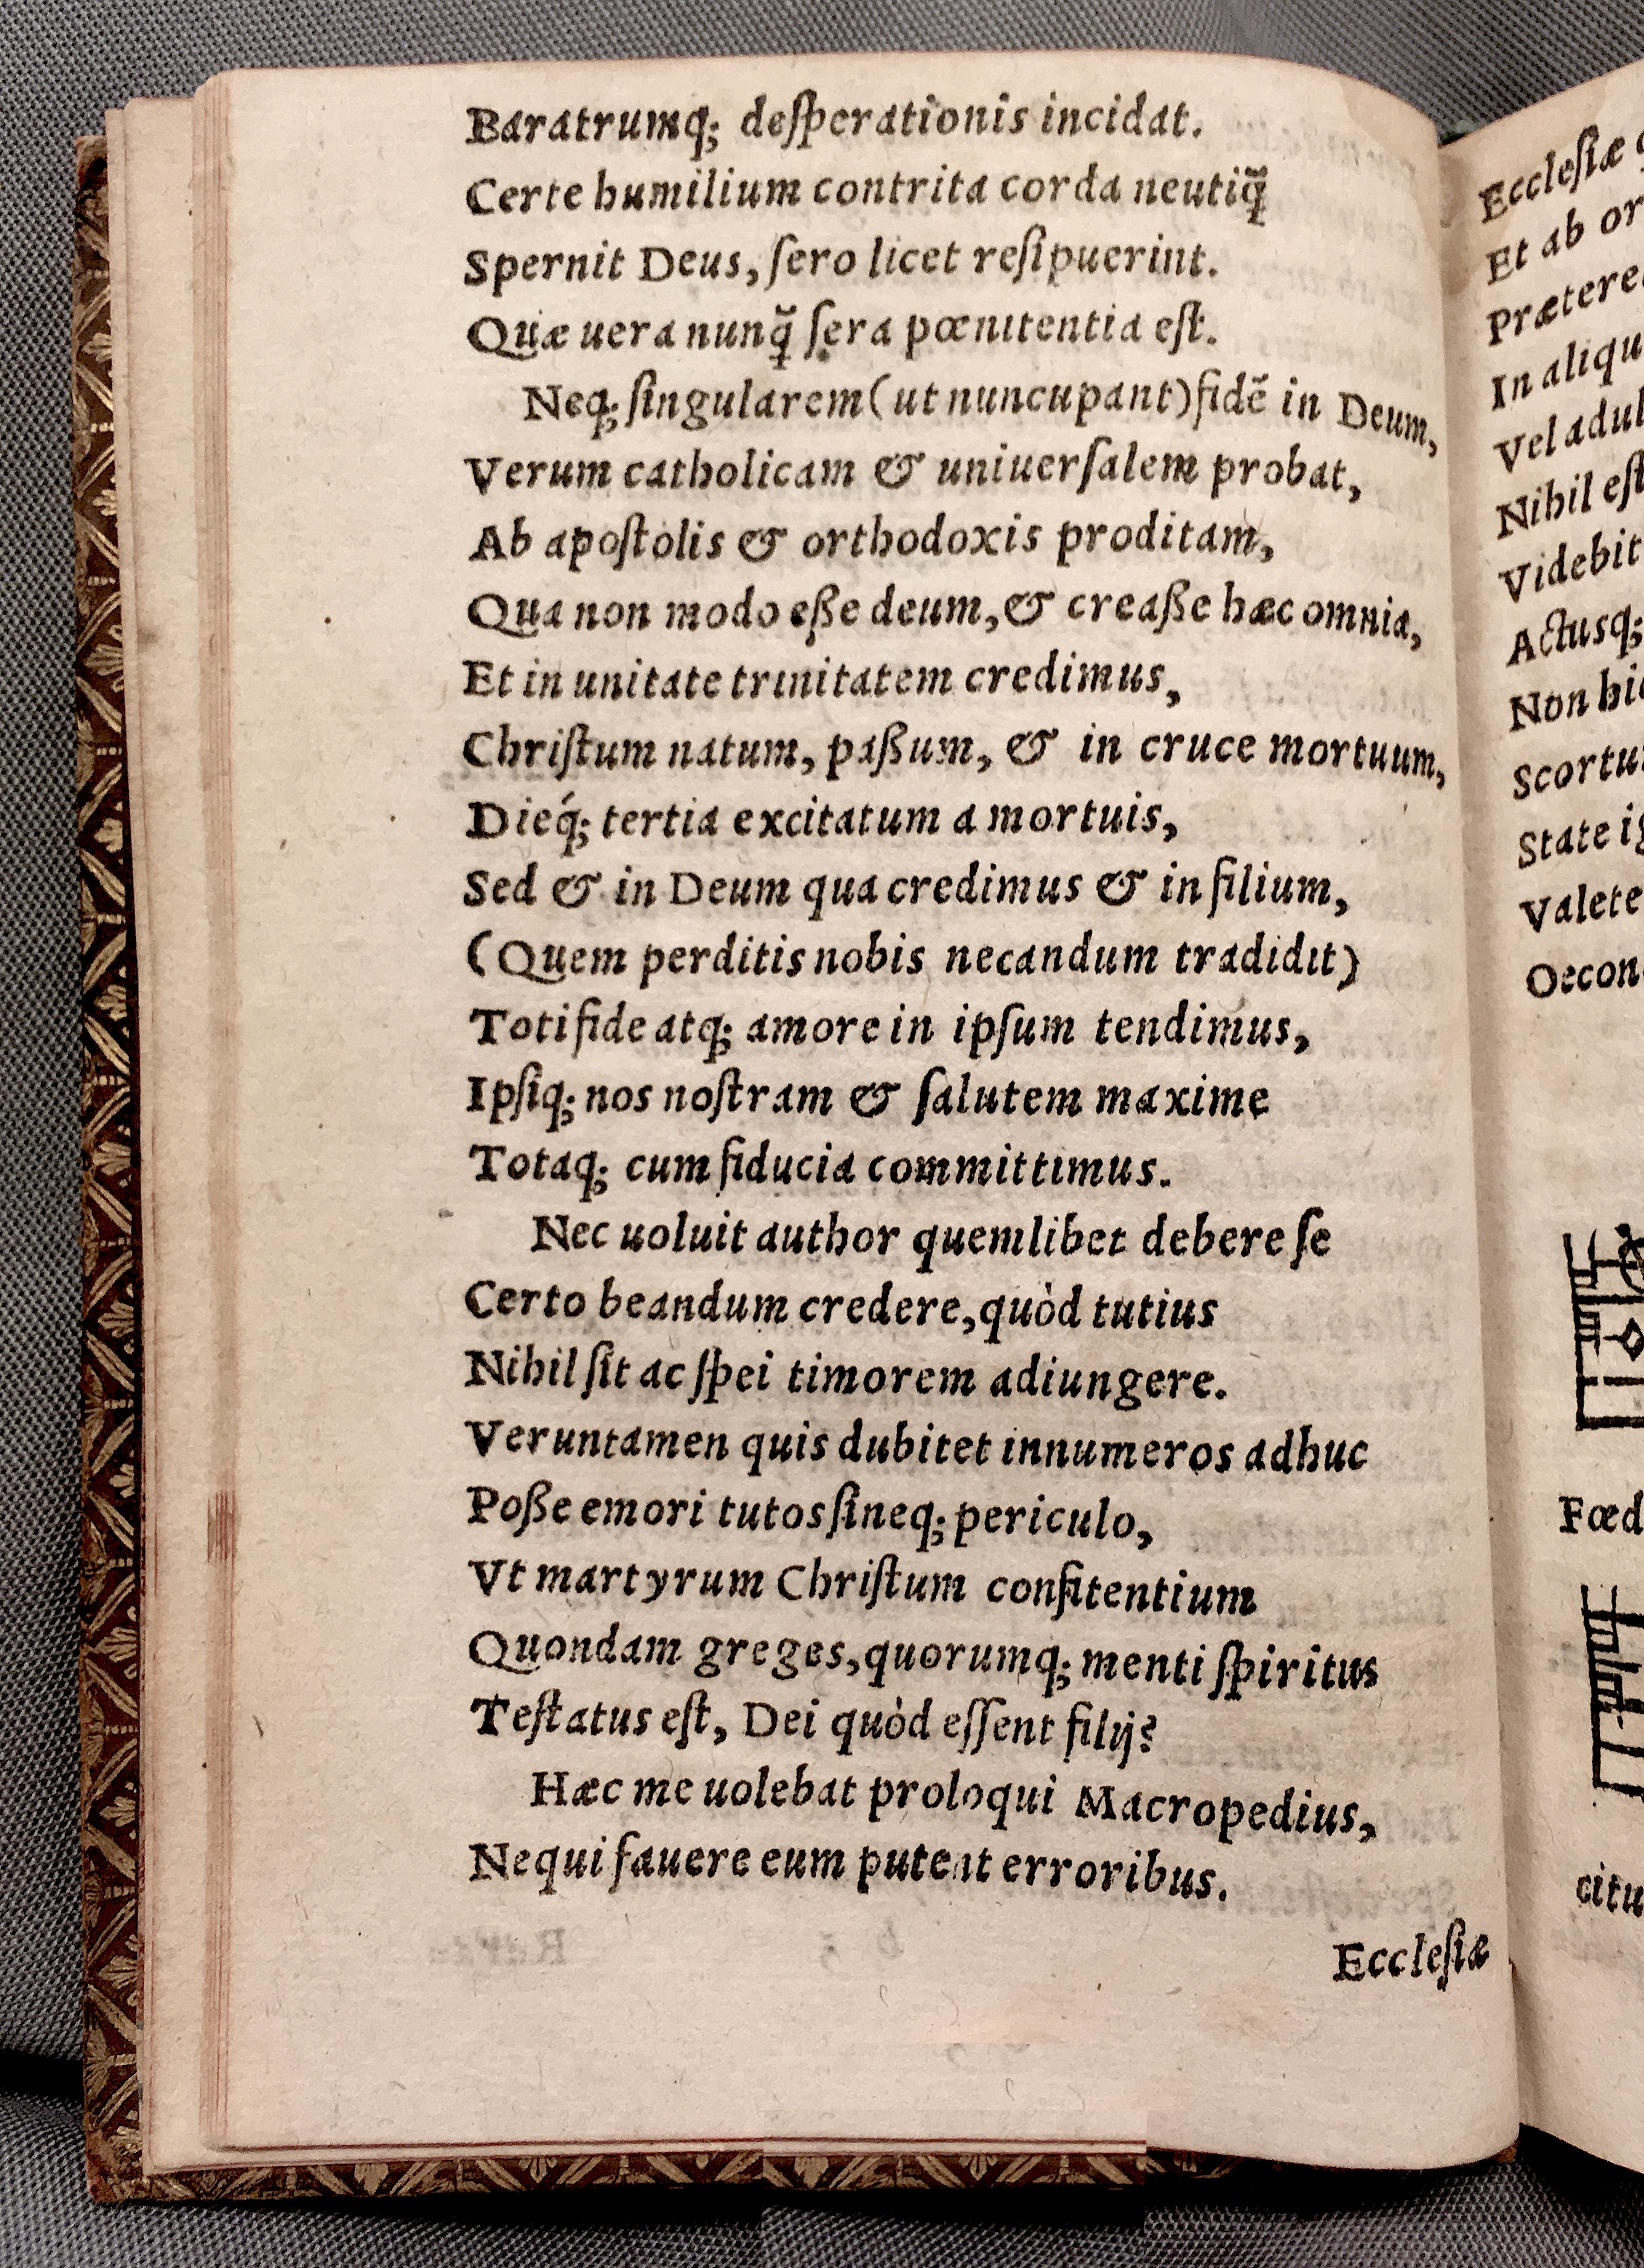 Baratrumq; deſperationis incidat.
Certe humilium contrita corda neutiq̃
Spernit Deus, ſero licet reſipuerint.
Quæ uera nunq̃ ſera pœnitentia eſt.
Neq; ſingularem (ut nuncupant) fidẽ in Deum,
Verum catholicam & uniuerſalem probat,
Ab apoſtolis & orthodoxis proditam,
Qua non modo eße deum, & creaße hæc omnia,
Et in unitate trinitatem credimus,
Chriſtum natum, paßum, & in cruce mortuum,
Dieq́; tertia excitatum a mortuis,
Sed & in Deum qua credimus & in filium,
(Quem perditis nobis necandum tradidit)
Toti fide atq; amore in ipſum tendimus,
Ipſiq; nos noſtram & ſalutem maxime
Totaq; cum fiducia committimus.
Nec uoluit author quemlibet debere ſe
Certo beandum credere, quòd tutius
Nihil ſit ac ſpei timorem adiungere.
Veruntamen quis dubitet innumeros adhuc
Poße emori tutos ſineq; periculo,
Vt martyrum Chriſtum confitentium
Quondam greges, quorumq; menti ſpiritus
Teſtatus eſt, Dei quòd eſſent filij?
Hæc me uolebat proloqui Macropedius,
Ne qui fauere eum putent erroribus.
Ecclesiæ
Eccleſiæ
Et ab
Præterea
In
Vel
Nihil eſt
Videbit
Actusq;
Non
State
Valete